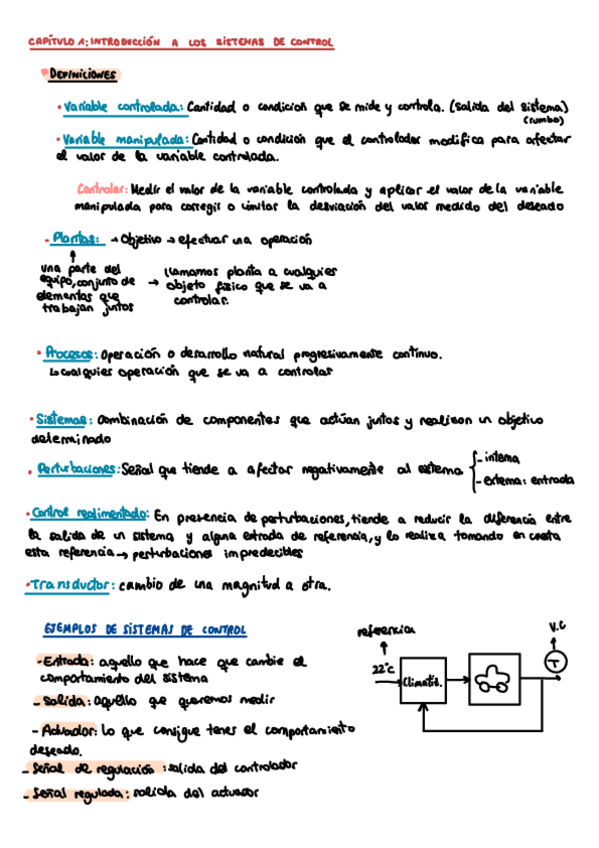 CAPÍTULO 1: INTRODUCCIÓN A LOS SISTEMAS DE CONTROL
DEFINICIONES
• Variable controlada: Cantidad o condición que se mide y controla. (Salida del sistema)
(rumbo)
• Variable manipulada: Cantidad o condición que el controlador modifica para afectar
el valor de la variable controlada.
Controlar: Medir el valor de la variable controlada y aplicar el valor de la variable
manipulada para corregir o limitar la desviación del valor medido del deseado
• Plantas: → Objetivo → efectuar una operación
una parte del
equipo, conjunto de
elementos que
trabajan juntos
→ llamamos planta a cualquier
objeto físico que se va a
controlar.
• Procesos: Operación o desarrollo natural progresivamente continuo.
↳ cualquier operación que se va a controlar
• Sistemas: Combinación de componentes que actúan juntos y realizan un objetivo
determinado
• Perturbaciones: Señal que tiende a afectar negativamente al sistema
- interna
- externa: entrada
• Control realimentado: En presencia de perturbaciones, tiende a reducir la diferencia entre
la salida de un sistema y alguna entrada de referencia, y lo realiza tomando en cuenta
esta referencia → perturbaciones impredecibles
• Transductor: cambio de una magnitud a otra.
EJEMPLOS DE SISTEMAS DE CONTROL
- Entrada: aquello que hace que cambie el
comportamiento del sistema
- Salida: aquello que queremos medir
- Actuador: lo que consigue tener el comportamiento
deseado.
- Señal de regulación: salida del controlador
- Señal regulada: salida del actuador
referencia
22°C
Climatiz.
V.C
T